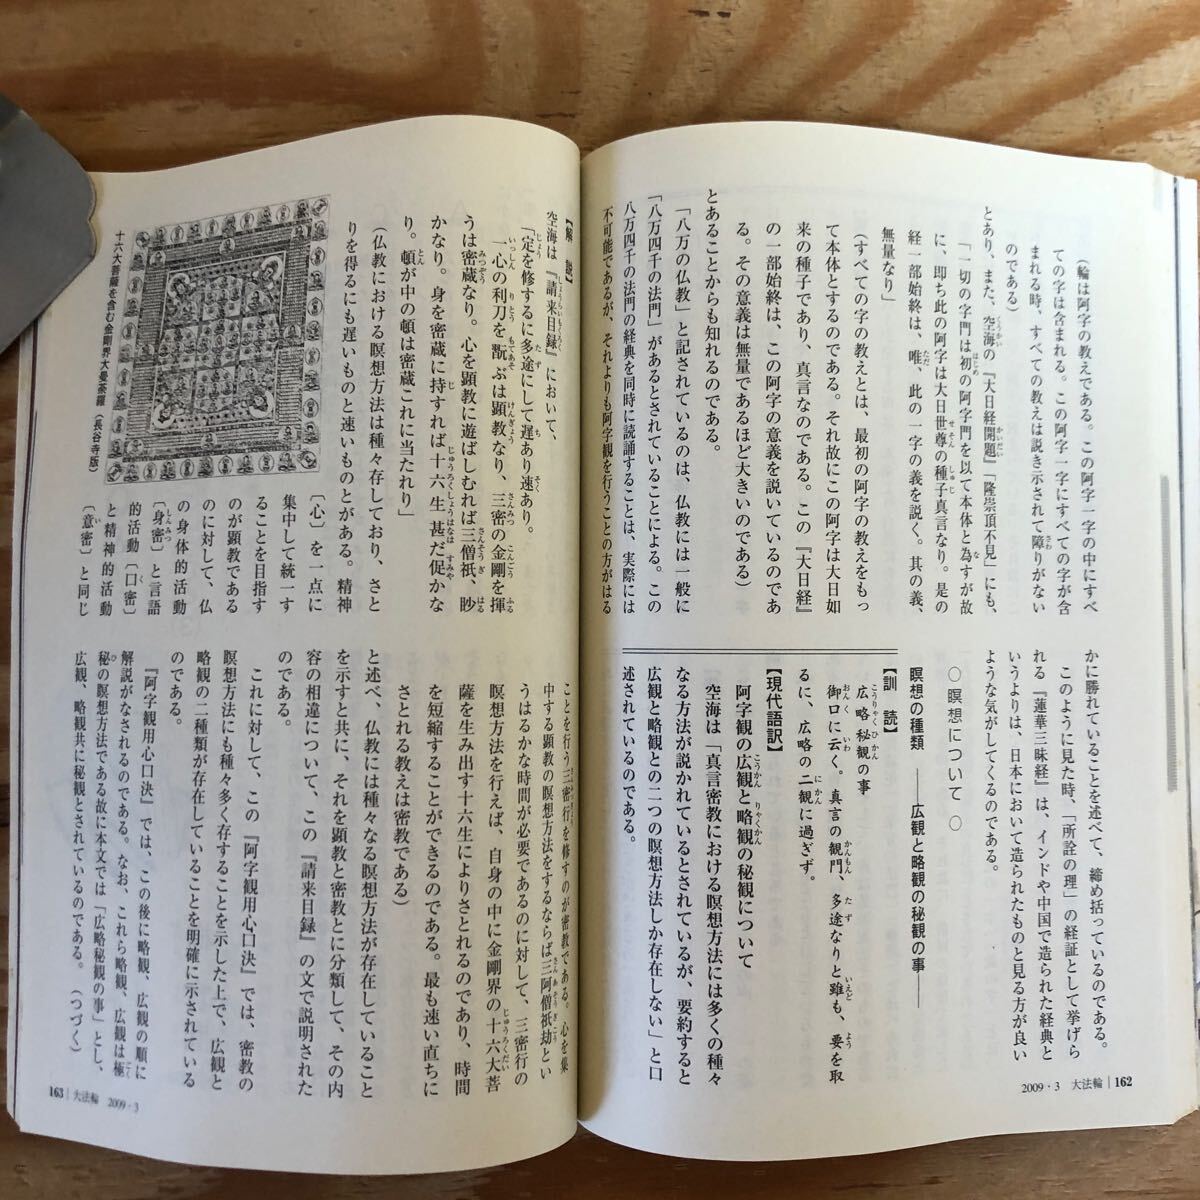 (輪は阿字の教えである。この阿字一字の中にすべ
ての字は含まれる。この阿字一字にすべての字が含
まれる時、すべての教えは説き示されて障りがない
のである)
とあり、また、空海の『大日経開題』「隆崇頂不見」にも、
「一切の字門は初の阿字門を以て本体と為すが故
に、即ち此の阿字は大日世尊の種子真言なり。是の
経一部始終は、唯、此の一字の義を説く。其の義、
無量なり」
(すべての字の教えとは、最初の阿字の教えをもっ
て本体とするのである。それ故にこの阿字は大日如
来の種子であり、真言なのである。この『大日経』
の一部始終は、この阿字の意義を説いているのであ
る。その意義は無量であるほど大きいのである)
とあることからも知れるのである。
「八万の仏教」と記されているのは、仏教には一般に
「八万四千の法門」があるとされていることによる。この
八万四千の法門の経典を同時に読誦することは、実際には
不可能であるが、それよりも阿字観を行うことの方がはる
かに勝れていることを述べて、締め括っているのである。
このように見た時、「所詮の理」の経証として挙げら
れる『蓮華三昧経』は、インドや中国で造られた経典と
いうよりは、日本において造られたものと見る方が良い
ような気がしてくるのである。
○ 瞑想について ○
瞑想の種類 ――広観と略観の秘観の事――
【訓 読】
広略秘観の事
御口に云く。真言の観門、多途なりと雖も、要を取
るに、広略の二観に過ぎず。
【現代語訳】
阿字観の広観と略観の秘観について
空海は「真言密教における瞑想方法には多くの種々
なる方法が説かれているとされているが、要約すると
広観と略観との二つの瞑想方法しか存在しない」と口
述されているのである。
2009・3 大法輪 | 162
【解 説】
空海は『請来目録』において、
「定を修するに多途にして遅あり速あり。
一心の利刀を翫ぶは顕教なり、三密の金剛を揮
うは密蔵なり。心を顕教に遊ばしむれば三僧祇、眇
かなり。身を密蔵に持すれば十六生甚だ促かな
り。頓が中の頓は密蔵これに当たれり」
(仏教における瞑想方法は種々存しており、さと
りを得るにも遅いものと速いものとがある。精神
〔心〕を一点に
集中して統一す
ることを目指す
のが顕教である
のに対して、仏
の身体的活動
〔身密〕と言語
的活動〔口密〕
と精神的活動
〔意密〕と同じ
十六大菩薩を含む金剛界大曼荼羅(長谷寺版)
ことを行う三密行を修すのが密教である。心を集
中する顕教の瞑想方法をするならば三阿僧祇劫とい
うはるかな時間が必要であるのに対して、三密行の
瞑想方法を行えば、自身の中に金剛界の十六大菩
薩を生み出す十六生によりさとれるのであり、時間
を短縮することができるのである。最も速い直ちに
さとれる教えは密教である)
と述べ、仏教には種々なる瞑想方法が存在していること
を示すと共に、それを顕教と密教とに分類して、その内
容の相違について、この『請来目録』の文で説明された
のである。
これに対して、この『阿字観用心口決』では、密教の
瞑想方法にも種々多く存することを示した上で、広観と
略観の二種類が存在していることを明確に示されている
のである。
『阿字観用心口決』では、この後に略観、広観の順に
解説がなされるのである。なお、これら略観、広観は極
秘の瞑想方法である故に本文では「広略秘観の事」とし、
広観、略観共に秘観とされているのである。(つづく)
163 | 大法輪 2009・3